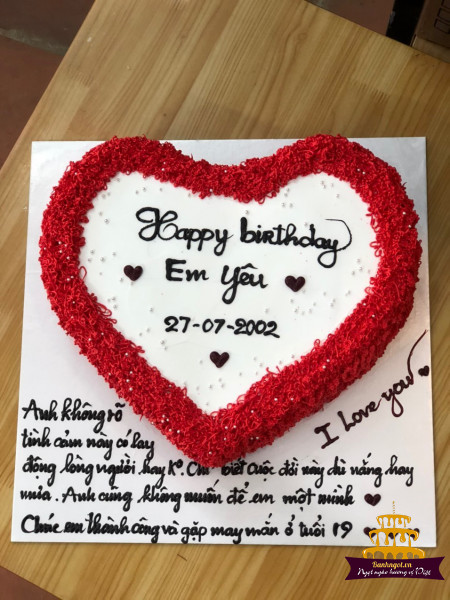 Happy birthday
Em Yêu
27-07-2002
I Love you
Anh không rõ
tình cảm này có lay
động lòng người hay ko. Chỉ biết cuộc đời này dù nắng hay
mưa. Anh cũng không muốn để em một mình
Chúc em thành công và gặp may mắn ở tuổi 19
Banhngot.vn
Ngọt ngào hương vị Việt